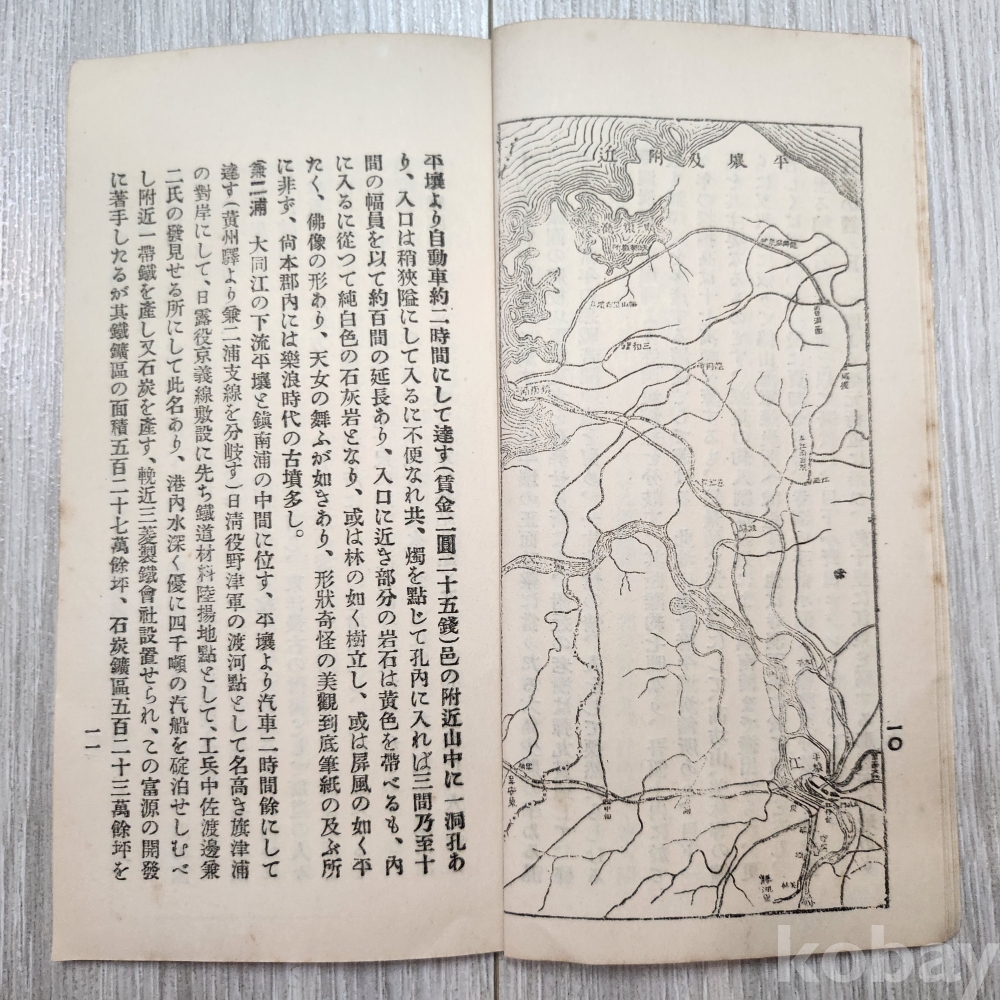 平壤及附近
三和
江
一〇
平壤より自動車約二時間にして達す(賃金二圓二十五錢)邑の附近山中に一洞孔あ
り、入口は稍狹隘にして入るに不便なれ共、燭を點じて孔內に入れば三間乃至十
間の幅員を以て約百間の延長あり、入口に近き部分の岩石は黄色を帶べるも、內
に入るに從つて純白色の石灰岩となり、或は林の如く樹立し、或は屏風の如く平
たく、佛像の形あり、天女の舞ふが如きあり、形狀奇怪の美觀到底筆紙の及ぶ所
に非ず、尙本郡內には樂浪時代の古墳多し。
兼二浦 大同江の下流平壤と鎮南浦の中間に位す、平壤より汽車二時間餘にして
達す(黄州驛より兼二浦支線を分岐す)日淸役野津軍の渡河點として名高き旗津浦
の對岸にして、日露役京義線敷設に先ち鐵道材料陸揚地點として、工兵中佐渡邊兼
二氏の發見せる所にして此名あり、港內水深く優に四千噸の汽船を碇泊せしむべ
し附近一帶鐵を產し又石炭を產す、輓近三菱製鐵會社設置せられ、この富源の開發
に著手したるが其鐵鑛區の面積五百二十七萬餘坪、石炭鑛區五百二十三萬餘坪を
一一
kobay